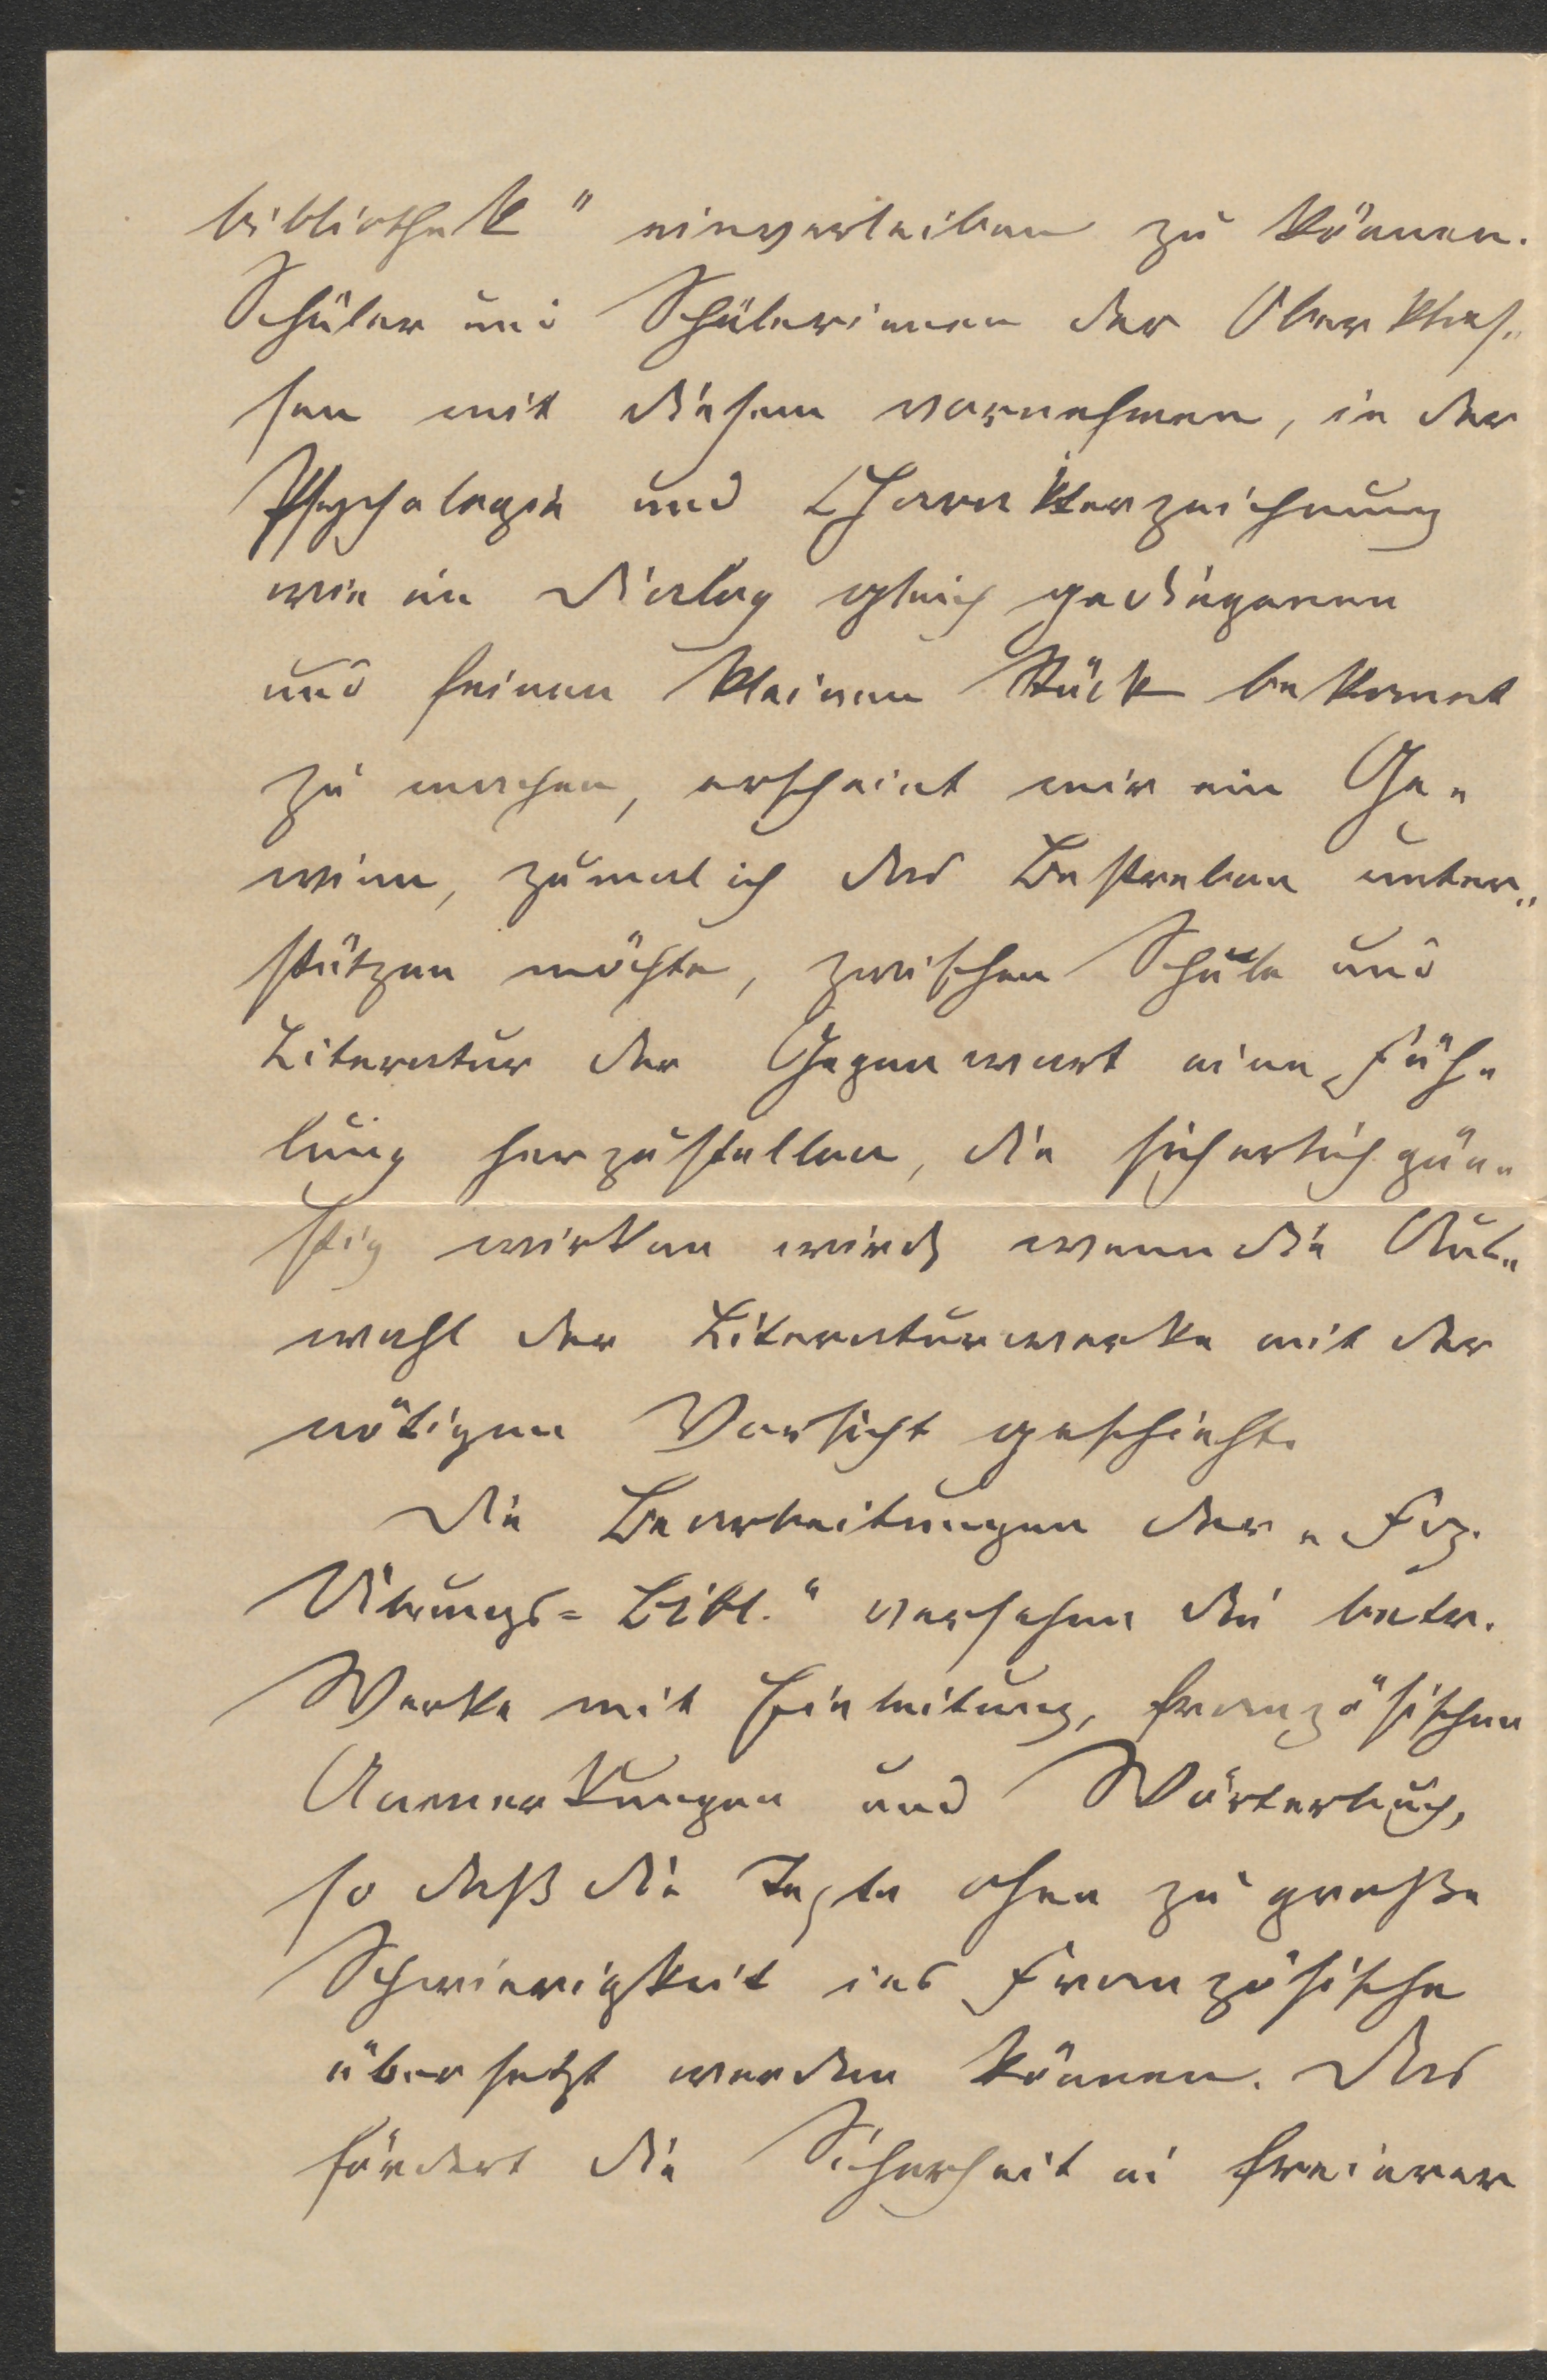 bibliothek" einverleiben zu können.
Schüler und Schülerinnen der Oberklas-
sen mit diesem vornehmen, in der
Psychologie und Charakterzeichnung
wie im Dialog gleich gediegenen
und feinen kleinen Stück bekannt
zu machen, erscheint mir ein Ge-
winn, zumal ich das Bestreben unter-
stützen möchte, zwischen Schule und
Literatur der Gegenwart eine Füh-
lung herzustellen, die sicherlich gün-
stig wirken wird, wenn die Aus-
wahl der Literaturwerke mit der
nötigen Vorsicht geschieht.
Die Bearbeitungen der „Frz.
Übungs=Bibl." versehen die betr.
Werke mit Einleitung, französischen
Anmerkungen und Wörterbuch,
so daß die Texte ohne zu große
Schwierigkeit ins Französische
übersetzt werden können. Das
fördert die Sicherheit in freierer